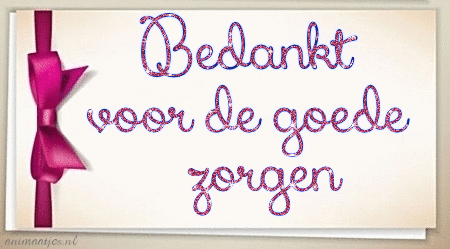 Bedankt
voor de goede
zorgen
animaatjes.nl